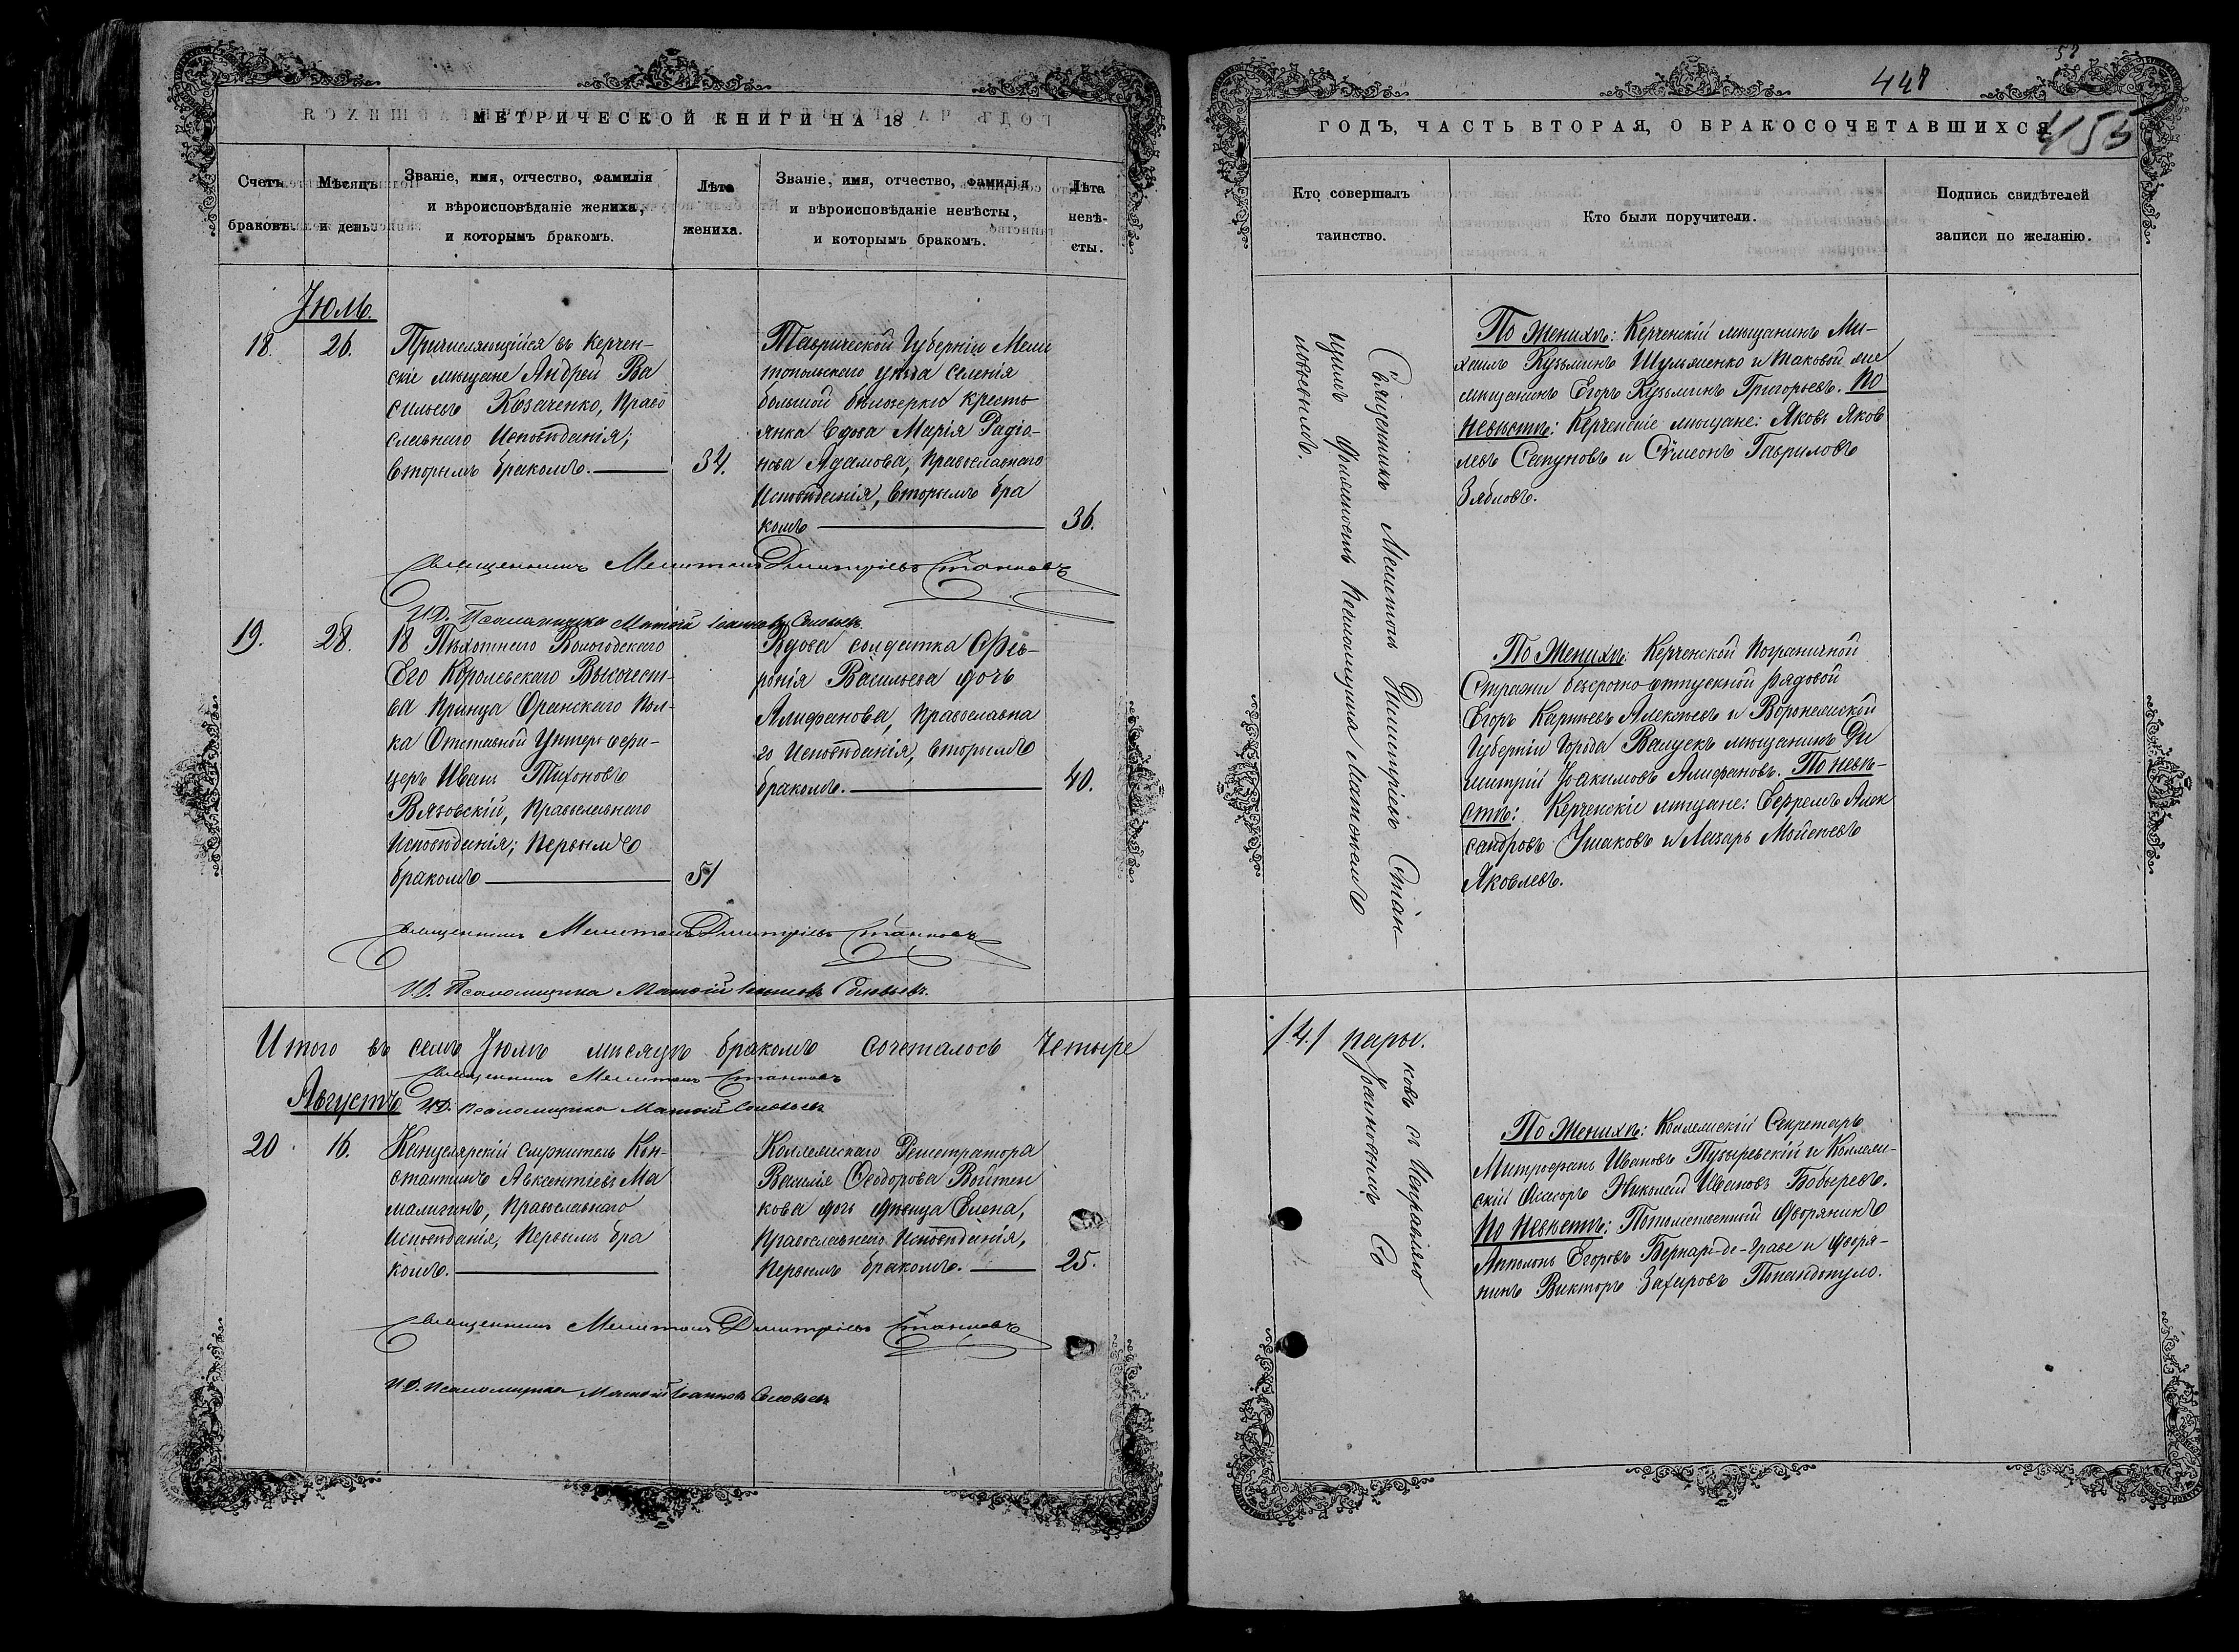 МЕТРИЧЕСКОЙ КНИГИ НА 18
Счетъ браковъ.
Мѣсяцъ и день.
Званіе, имя, отчество, фамилія
и вѣроисповѣданіе жениха,
и которымъ бракомъ.
Лѣта
жениха.
Званіе, имя, отчество, фамилія
и вѣроисповѣданіе невѣсты,
и которымъ бракомъ.
Лѣта
невѣ-
сты.
Іюль.
18.
26.
Причисляющійся въ Керчен-
скіе мѣщане Андрей Ва
сильевъ Козаченко, Право
славнаго Исповѣданія;
вторымъ бракомъ.
34.
Таврической Губерніи Мели
топольскаго уѣзда селенія
большой бѣлозерки кресть
янка вдова Марія Радіо-
нова Адамова, Православнаго
Исповѣданія, вторымъ бра
комъ
36.
Священникъ Мелитонъ Дмитріевъ Станковъ
И.Д. Псаломщика Матѳій Іоанновъ Соловьевъ
19.
28.
18 Пѣхотнаго Вологодскаго
Его Королевскаго Высочест-
ва Принца Оранскаго Пол-
ка Отставной Унтеръ офи-
церъ Иванъ Тихоновъ
Вязовскій, Православнаго
Исповѣданія; Первымъ
бракомъ
51
Вдова солдатка Фев-
ронія Васильева дочь
Алифанова, Православна
го Исповѣданія, вторымъ
бракомъ.
40.
Священникъ Мелитонъ Дмитріевъ Станковъ
И.Д. Псаломщика Матѳій Іоанновъ Соловьевъ.
Итого въ семъ Іюлѣ мѣсяцѣ бракомъ сочеталось Четыре
Священникъ Мелитонъ Станковъ
Августъ
И.Д. псаломщика Матѳій Соловьевъ
20
16.
Канцелярскій служитель Кон-
стантинъ Авксентіевъ Ма
малыгинъ, Православнаго
Исповѣданія, Первымъ бра
комъ.
Коллежскаго Регистратора
Василія Ѳеодорова Войтен
кова дочь дѣвица Елена,
Православнаго Исповѣданія,
Первымъ бракомъ.
25.
Священникъ Мелитонъ Дмитріевъ Станковъ
И.Д. Псаломщика Матѳій Іоанновъ Соловьевъ
448
455
ГОДЪ, ЧАСТЬ ВТОРАЯ, О БРАКОСОЧЕТАВШИХСЯ
Кто совершалъ
таинство.
Кто были поручители.
Подпись свидѣтелей
записи по желанію.
Священникъ Мелитонъ Димитріевъ Стан-
ковъ съ Исправляю
щимъ должность Псаломщика Матѳѣемъ
Іоанновымъ Со
ловьевымъ.
По Женихѣ: Керченскій мѣщанинъ Ми-
хаилъ Кузьминъ Шульженко и таковой же
мѣщанинъ Егоръ Кузьминъ Григорьевъ. По
Невѣстѣ: Керченскіе мѣщане: Яковъ Яков
левъ Сапуновъ и Сѵмеонъ Гавриловъ
Зябловъ.
По Женихѣ: Керченской Пограничной
Стражи безсрочно отпускной рядовой
Егоръ Карповъ Алексѣевъ и Воронежской
Губерніи Города Валуекъ мѣщанинъ Ди
митрій Іоакимовъ Алифановъ. По Невѣ-
стѣ: Керченскіе мѣщане: Ефремъ Алек
сандровъ Ушаковъ и Лазарь Мойсеевъ
Яковлевъ.
/4./ пары.
По Женихѣ: Коллежскій Секретарь
Митрофанъ Ивановъ Пузыревскій и Коллеж-
скій Ассесоръ Николай Ивановъ Бобыревъ.
По Невѣстѣ: Потомственный Дворянинъ
Апполонъ Егоровъ Бернарь-де-Граве и дворя-
нинъ Викторъ Захаровъ Попандопуло.